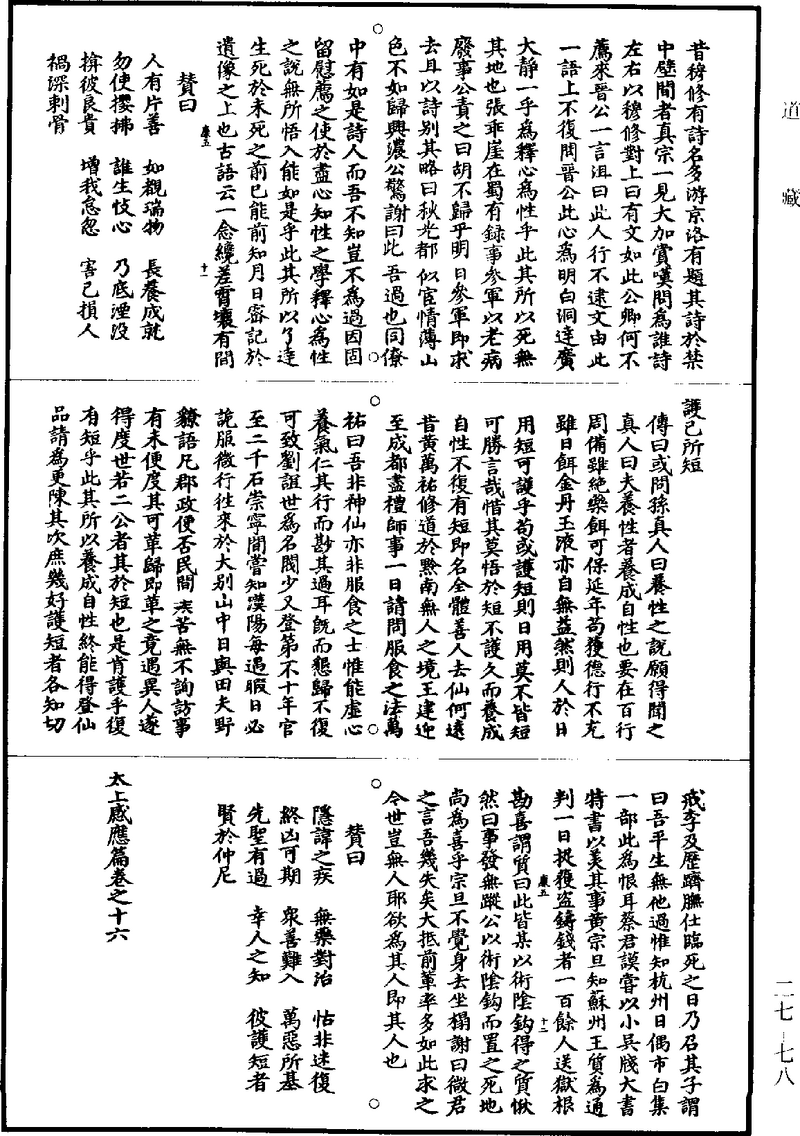 道藏
昔穆修有詩名多游京洛有題其詩於禁
中壁間者真宗一見大加賞嘆問為誰詩
左右以穆修對上曰有文如此公卿何不
薦來晉公一言沮曰此人行不逮文由此
一語上不復問晉公此心為明白洞達廣
大靜一乎為釋心為性乎此其所以死無
其地也張乖崖在蜀有録事參軍以老病
廢事公責之曰胡不歸乎明日參軍即求
去且以詩別其略曰秋光都似宦情薄山
色不如歸興濃公驚謝曰此吾過也同僚
中有如是詩人而吾不知豈不為過因固
留慰薦之使於盡心知性之學釋心為性
之說無所悟入能如是乎此其所以了達
生死於未死之前已能前知月日密記於
遺像之上也古語云一念纔差霄壤有間
贊曰
人有片善 如觀瑞物 長養成就
勿使攖拂 誰生忮心 乃底湮没
揜彼良貴 增我怠忽 害己損人
禍深刺骨
護己所短
傳曰或問孫真人曰養性之說願得聞之
真人曰夫養性者養成自性也要在百行
周備雖絶藥餌可保延年苟獲德行不充
雖日餌金丹玉液亦自無益然則人於日
用短可護乎苟或護短則日用莫不皆短
可勝言哉惜其莫悟於短不護久而養成
自性不復有短即名全體善人去仙何遠
昔黄萬祐修道於黔南無人之境王建迎
至成都盡禮師事一日請問服食之法萬
祐曰吾非神仙亦非服食之士惟能虛心
養氣仁其行而尠其過耳旣而懇歸不復
可致劉誼世為名閥少又登第不十年官
至二千石崇寧間嘗知漢陽每遇暇日必
詭服微行往來於大别山中日與田夫野
獠語凡郡政便否民間疾苦無不詢訪事
有未便度其可革歸即革之竟遇異人遂
得度世若二公者其於短也是肯護乎復
有短乎此其所以養成自性終能得登仙
品請為更陳其次庶幾好護短者各知切
戒李及歷躋膴仕臨死之日乃召其子謂
曰吾平生無他過惟知杭州日偶市白集
一部此為恨耳蔡君謨嘗以小吳牋大書
特書以美其事黄宗旦知蘇州王質為通
判一日捉獲盗鑄錢者一百餘人送獄根
勘喜謂質曰此皆某以術陰鈎得之質愀
然曰事發無蹤公以術陰鈎而置之死地
尚為喜乎宗旦不覺身去坐榻謝曰微君
之言吾幾失矣大抵前輩率多如此求之
今世豈無人耶欲為其人即其人也
贊曰
隱諱之疾 無藥對治 怙非迷復
終凶可期 衆善難入 萬惡所基
先聖有過 幸人之知 彼護短者
賢於仲尼
太上感應篇卷之十六
廉五
十一
廉五
十二
二七–七八